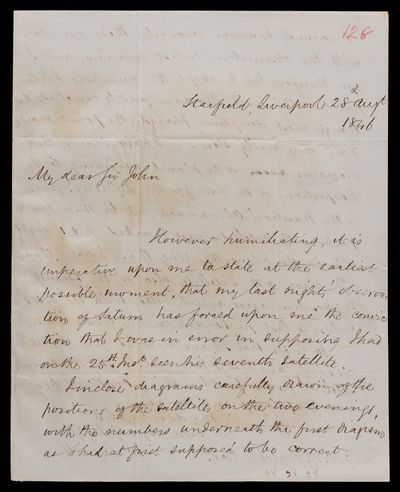 128
Starfield, Liverpool 28th Augt
1846
My dear Sir John
However humiliating, it is
imperative upon me to state at the earliest
possible moment, that my last night's observa
tion of Saturn has forced upon me the convic
tion that I was in error in supposing I had
on the 25th Inst. seen his seventh satellite.
I inclose diagrams carefully drawn of the
positions of the satellites on the two evenings,
with the numbers underneath the first diagram
as I had at first supposed to be correct.